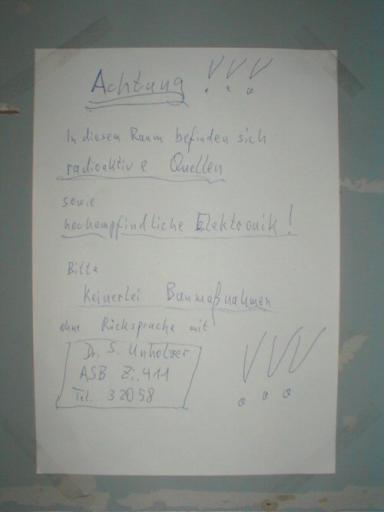 Achtung !!!
In diesem Raum befinden sich
radioaktive Quellen
sowie
hochempfindliche Elektronik!
Bitte
keinerlei Baumaßnahmen
ohne Rücksprache mit
Dr. S. Unholzer
ASB Zi. 411
Tel. 32058
!!!